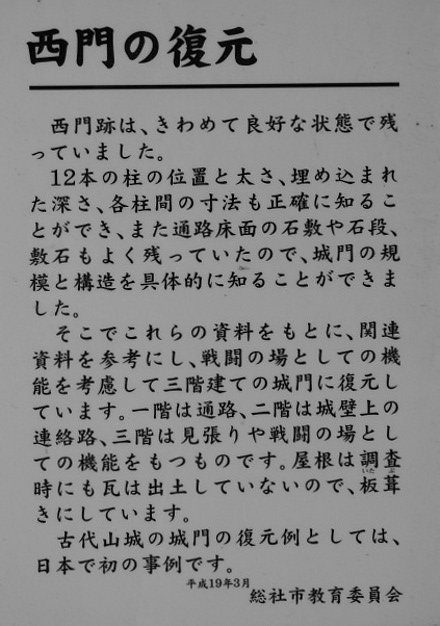 西門の復元
西門跡は、きわめて良好な状態で残
っていました。
12本の柱の位置と太さ、埋め込まれ
た深さ、各柱間の寸法も正確に知るこ
とができ、また通路床面の石敷や石段、
敷石もよく残っていたので、城門の規
模と構造を具体的に知ることができま
した。
そこでこれらの資料をもとに、関連
資料を参考にし、戦闘の場としての機
能を考慮して三階建ての城門に復元し
ています。一階は通路、二階は城壁上の
連絡路、三階は見張りや戦闘の場とし
ての機能をもつものです。屋根は調査
時にも瓦は出土していないので、板葺
きにしています。
古代山城の城門の復元例としては、
日本で初の事例です。
平成19年3月
総社市教育委員会